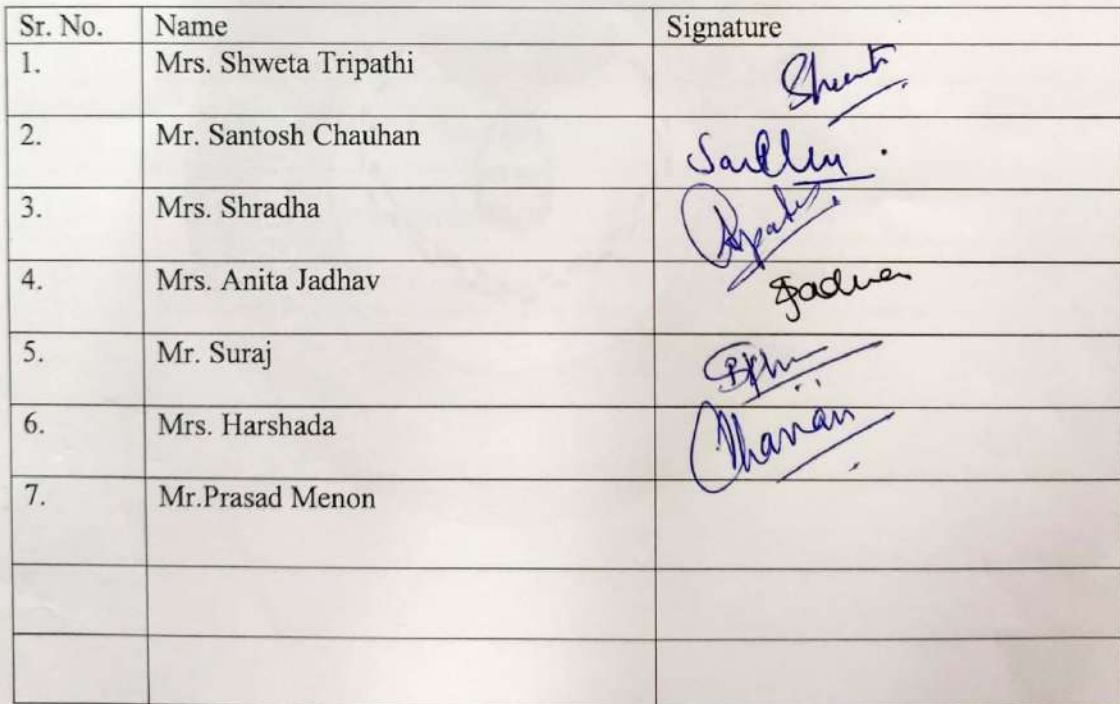 Sr. No. Name Signature
1. Mrs. Shweta Tripathi
2. Mr. Santosh Chauhan
3. Mrs. Shradha
4. Mrs. Anita Jadhav
5. Mr. Suraj
6. Mrs. Harshada
7. Mr.Prasad Menon